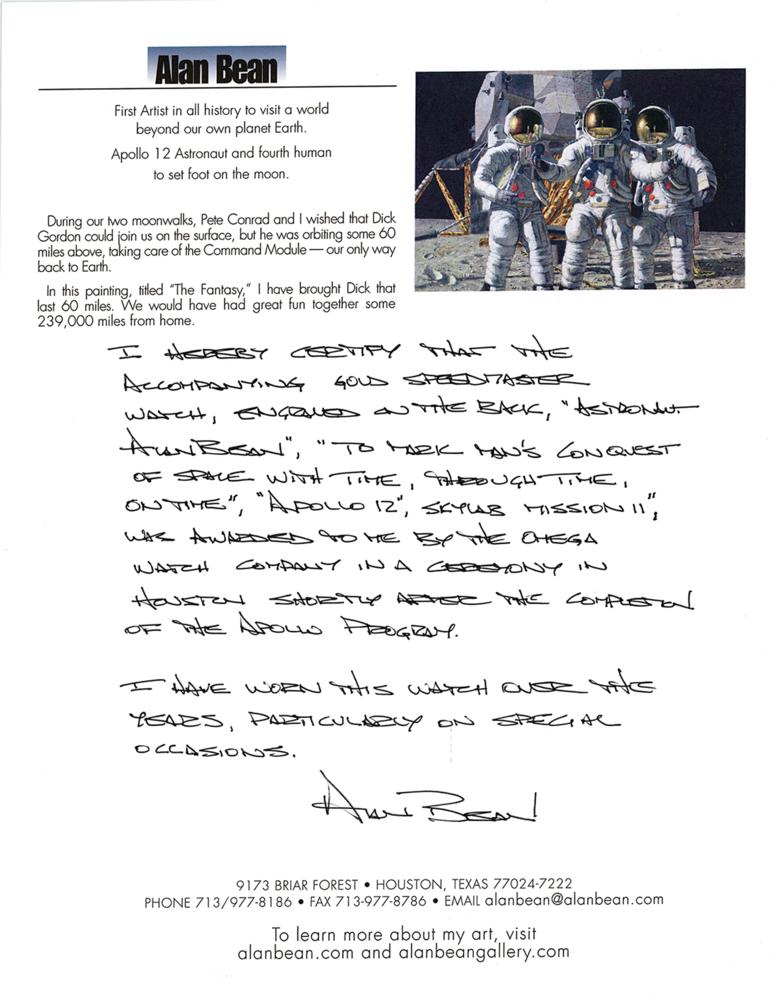 Alan Bean
First Artist in all history to visit a world
beyond our own planet Earth.
Apollo 12 Astronaut and fourth human
to set foot on the moon.
During our two moonwalks, Pete Conrad and I wished that Dick
Gordon could join us on the surface, but he was orbiting some 60
miles above, taking care of the Command Module — our only way
back to Earth.
In this painting, titled "The Fantasy," I have brought Dick that
last 60 miles. We would have had great fun together some
239,000 miles from home.
I HEREBY CERTIFY THAT THE
ACCOMPANYING GOLD SPEEDMASTER
WATCH, ENGRAVED ON THE BACK, "ASTRONAUT
ALAN BEAN", "TO MARK MAN'S CONQUEST
OF SPACE WITH TIME, THROUGH TIME,
ON TIME", "APOLLO 12", SKYLAB MISSION II",
WAS AWARDED TO ME BY THE OMEGA
WATCH COMPANY IN A CEREMONY IN
HOUSTON SHORTLY AFTER THE COMPLETION
OF THE APOLLO PROGRAM.
I HAVE WORN THIS WATCH OVER THE
YEARS, PARTICULARLY ON SPECIAL
OCCASIONS.
Alan Bean
9173 BRIAR FOREST • HOUSTON, TEXAS 77024-7222
PHONE 713/977-8186 • FAX 713-977-8786 • EMAIL alanbean@alanbean.com
To learn more about my art, visit
alanbean.com and alanbeangallery.com